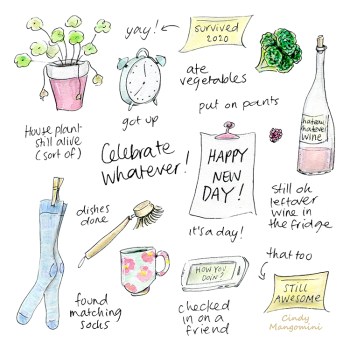 yay!
survived
2020
ate
vegetables
put on pants
got up
House plant
still alive
(sort of)
Celebrate
whatever!
HAPPY
NEW
DAY!
whatever
wine
still ok
leftover
wine in
the fridge
dishes
done
it's a day!
that too
HOW YOU
DOIN?
STILL
AWESOME
found
matching
socks
checked
in on a
friend
Cindy
Mangomini